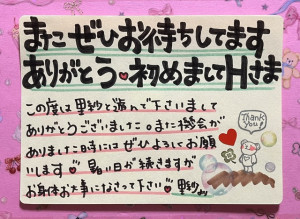 またこ ぜひお待ちしてます
ありがとう♥初めましてHさま
この度は里紗と遊んで下さいまして
ありがとうございました。また機会が
ありました時にはぜひよろしくお願
いします♡暑い日が続きますが
お身体お大事になさって下さい♡里紗より
Thank
You!